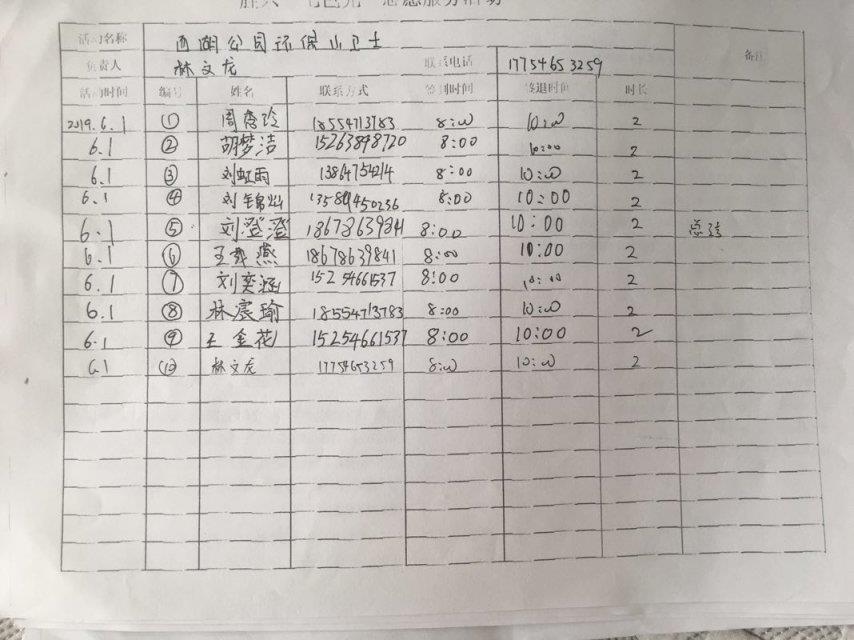 志愿服务活动
活动名称 西湖公园环保小卫士 备注
负责人 林文龙 联系电话 17754653259
活动时间 编号 姓名 联系方式 签到时间 签退时间 时长
2019.6.1 ① 周霞玲 18554713783 8:00 10:00 2
6.1 ② 胡梦洁 15263898720 8:00 10:00 2
6.1 ③ 刘虹雨 13864754214 8:00 10:00 2
6.1 ④ 刘锦灿 8:00 10:00 2
6.1 ⑤ 刘澄澄 18678639841 8:00 10:00 2
6.1 ⑥ 王 燕 18678639841 8:00 10:00 2
6.1 ⑦ 刘奕涵 15254661537 8:00 10:00 2
6.1 ⑧ 林宸瑜 18554713783 8:00 10:00 2
6.1 ⑨ 王金花 15254661537 8:00 10:00 2
6.1 ⑩ 林文龙 17754653259 8:00 10:00 2